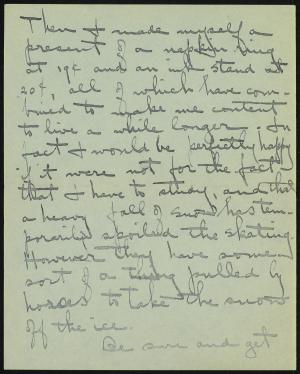 Then I made myself a
present of a napkin ring
at 19¢ and an ink stand at
20¢, all of which have com-
bined to make me content
to live a while longer. In
fact I would be perfectly happy
if it were not for the fact
that I have to study, and that
a heavy fall of snow has tem-
porarily spoiled the skating.
However they have some
sort of a thing pulled by
horses to take the snow
off the ice.
Be sure and get